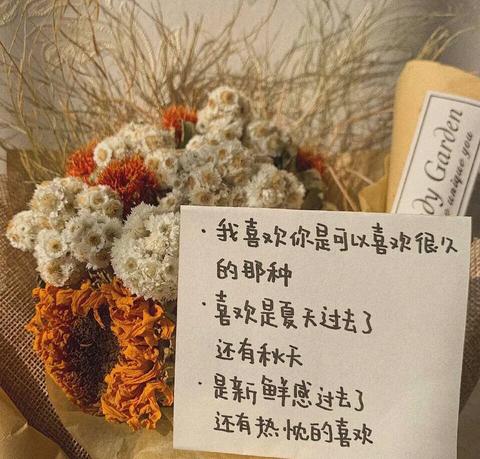 · 我喜欢你是可以喜欢很久
的那种
· 喜欢是夏天过去了
还有秋天
· 是新鲜感过去了
还有热忱的喜欢
Garden
unique you